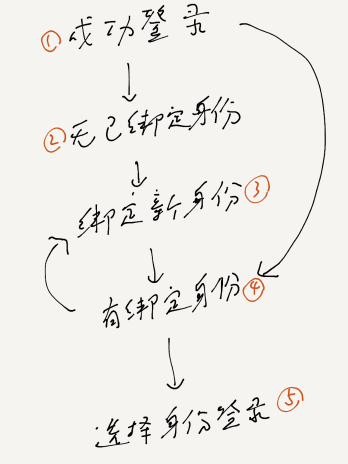 ① 成功登录
② 无已绑定身份
绑定新身份 ③
有绑定身份 ④
选择身份登录 ⑤